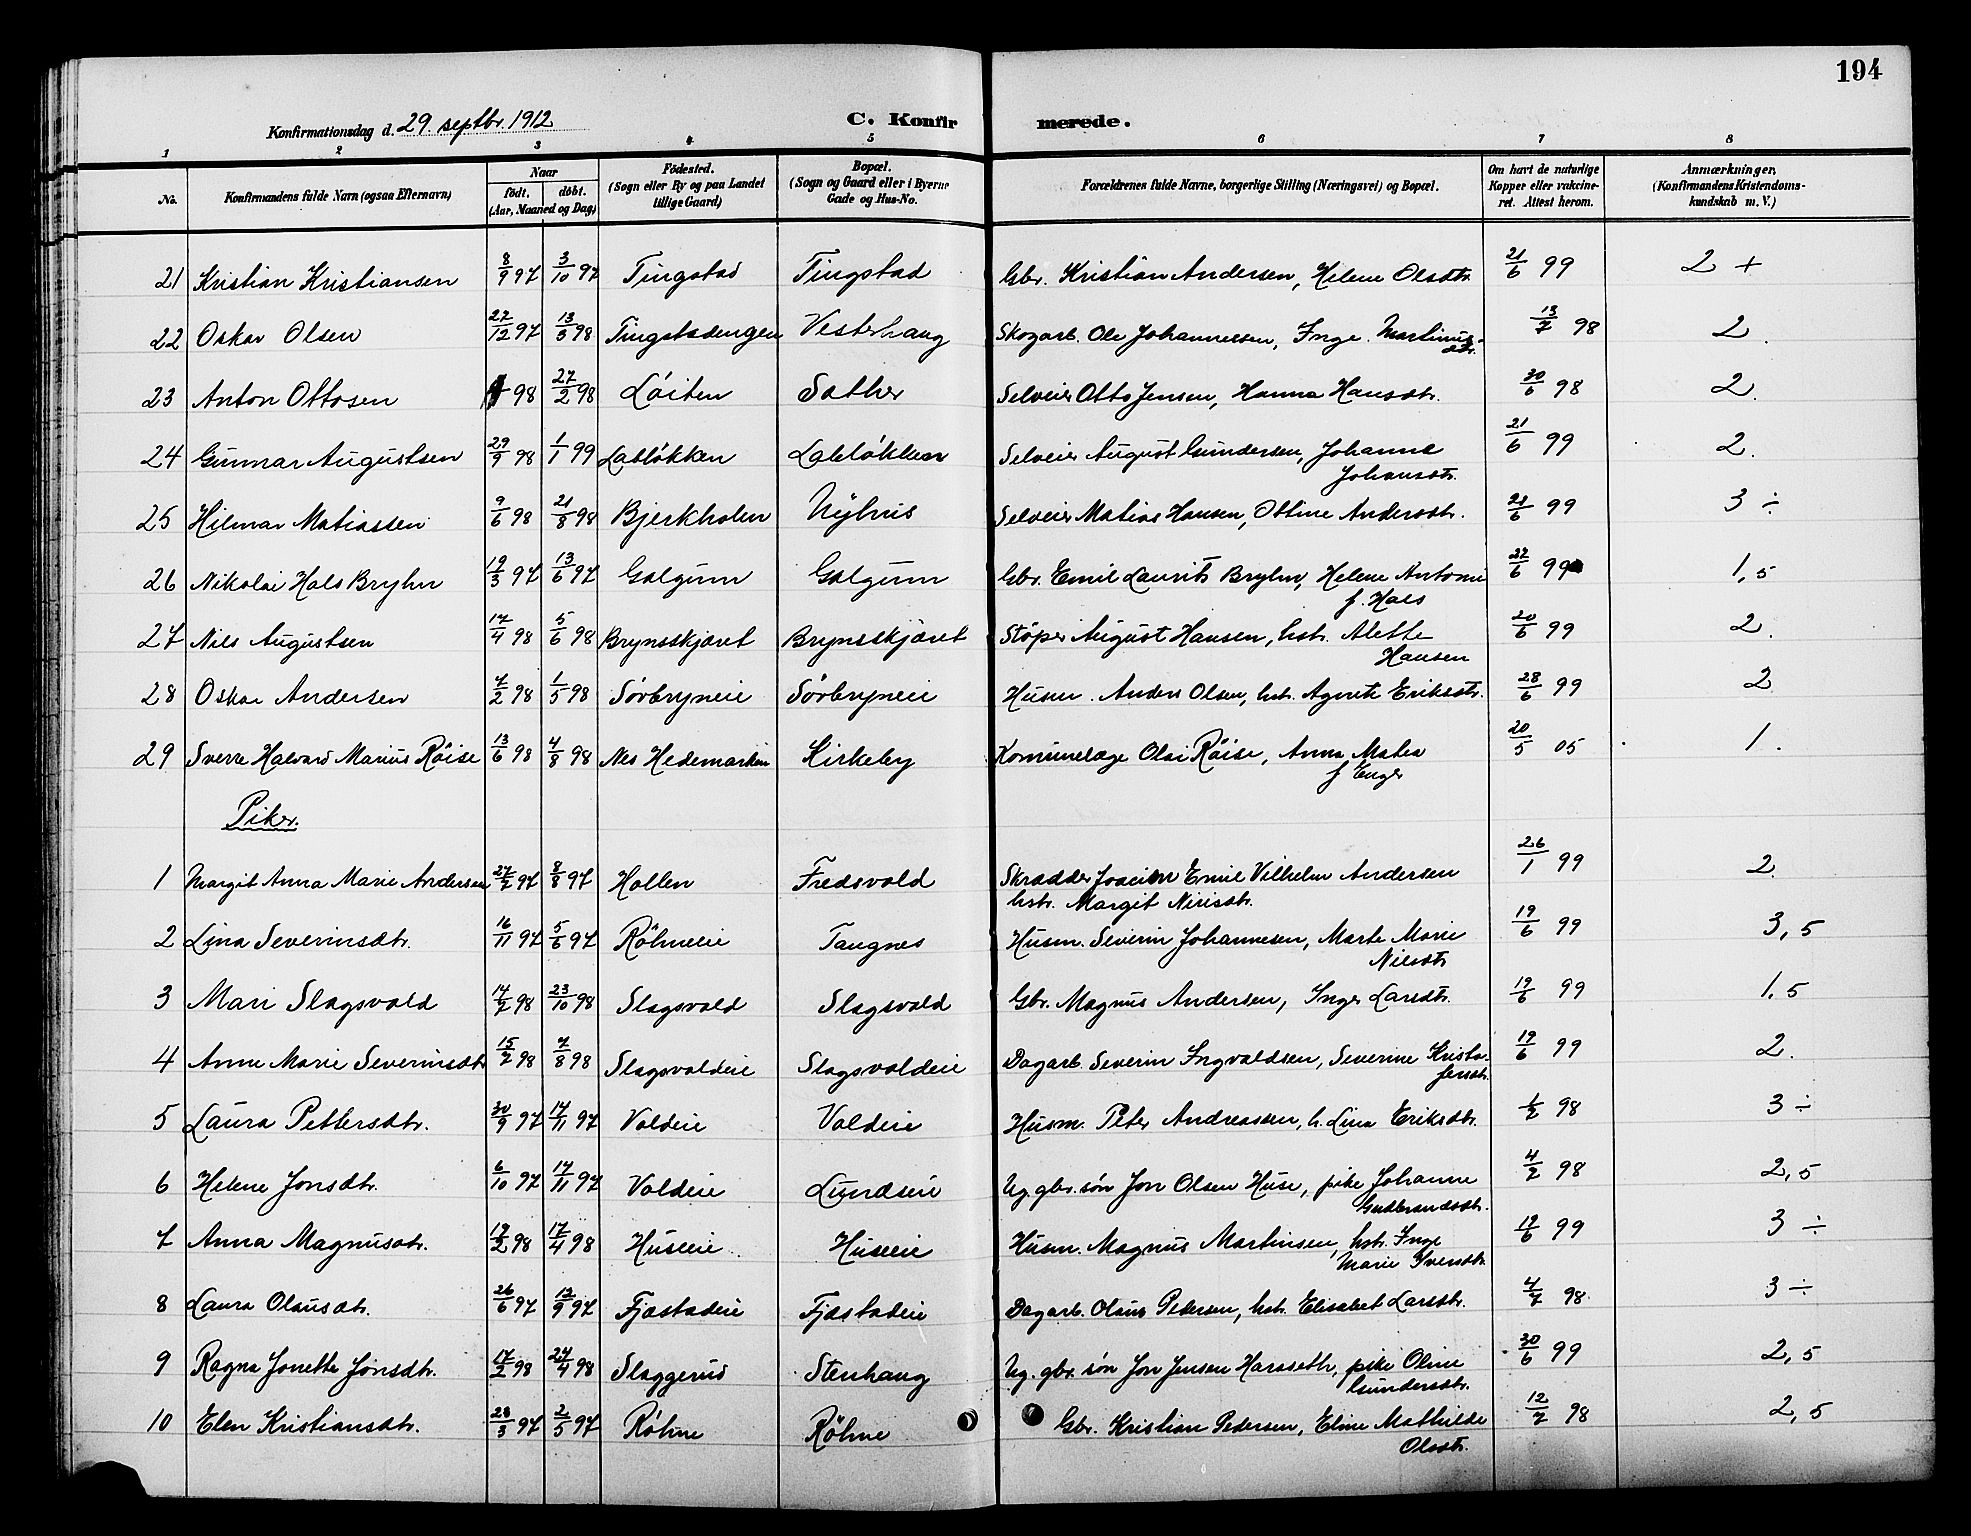 194
Konfirmationsdag d. 29 septbr. 1912 C. Konfirmerede.
1 2 3 4 5 6 7 8
No. Konfirmandens fulde Navn (ogsaa Efternavn) Naar födt. döbt. (Aar, Maaned og Dag) Födested. (Sogn eller By og paa Landet tillige Gaard) Bopæl. (Sogn og Gaard eller i Byerne Gade og Hus-No. Forældrenes fulde Navne, borgerlige Stilling (Næringsvei) og Bopæl. Om havt de naturlige Kopper eller vakcineret. Attest herom. Anmærkninger, (Konfirmandens Kristendomskundskab m. V.)
21 Kristian Kristiansen 8/9 97 3/10 97 Tingstad Tingstad Gbr. Kristian Andersen, Helene Olsdtr. 21/6 99 2 +
22 Oskar Olsen 27/12 97 13/3 98 Tingstadengen Vesterhaug Skogarb. Ole Johannessen, Inge Martinusdtr. 13/7 98 2.
23 Anton Ottosen 98 27/2 98 Löiten Sæther Selveier Otto Jensen, Hanna Hansdtr. 30/6 98 2.
24 Gunnar Augustsen 29/9 98 1/1 99 Labløkken Labløkken Selveier August Gundersen, Johanne Johansdtr. 21/6 99 2.
25 Hilmar Matiassen 9/6 98 21/8 98 Bjerkholen Nyhus Selveier Matias Hansen, Ottine Andersdtr. 21/6 99 3 ÷
26 Nikolai Hals Bryhn 19/3 97 13/6 97 Galgum Galgum Gbr. Emil Laurits Bryhn, Helene Antonie f. Hals 27/6 99 1,5
27 Nils Augustsen 17/4 98 5/6 98 Brynsskjæret Brynsskjæret Støper August Hansen, hst. Alette Hansen 20/6 99 2.
28 Oskar Andersen 7/2 98 1/5 98 Sörbryneie Sörbryneie Husm. Anders Olsen, hst. Agnete Eriksdtr. 28/6 99 2
29 Sverre Halvard Marius Röise 13/6 98 4/8 98 Nes Hedemarken Kirkeby Komunelæge Olai Röise, Anna Matea f Enger 20/5 05 1.
Piker.
1 Margit Anna Marie Andersen 27/7 97 8/8 97 Hollen Fredsvold Skrædder Joacim Emil Vilhelm Andersen hstr. Margit Nirisdtr. 26/1 99 2.
2 Lina Severinsdtr. 16/11 97 5/6 97 Röhneeie Tangnes Husm. Severin Johannesen, Marte Marie Nilsdtr 19/6 99 3,5
3 Mari Slagsvold 14/7 98 23/10 98 Slagsvold Slagsvold Gbr. Magnus Andersen, Inger Larsdtr. 19/6 99 1,5
4 Anne Marie Severinsdtr 15/7 98 7/8 98 Slagsvoldeie Slagsvoldeie Dagarb. Severin Ingvaldsen, Severine Kristofersdtr. 19/6 99 2.
5 Laura Pettersdtr. 30/9 97 14/11 97 Voldeie Voldeie Husm. Peter Andreassen, h. Lina Eriksdtr. 1/2 98 3 ÷
6 Helene Jonsdtr. 6/10 97 14/11 97 Voldeie Lundseie Ug. gbr. søn Jon Olsen Huse, pike Johanne Gudbrandsdtr. 4/2 98 2,5
7 Anna Magnusdtr. 19/2 98 17/4 98 Huseeie Huseeie Husm. Magnus Martinsen, hst. Inge Marie Iversdtr. 19/6 99 3 ÷
8 Laura Olausdtr. 26/6 97 12/9 97 Fjæstadeie Fjæstadeie Dagarb. Olaus Pedersen, hst. Elisabet Larsdtr. 4/7 98. 3 ÷
9 Ragna Jonette Jonsdtr. 17/2 98 24/4 98 Slaggerud Stenhaug Ug. gbr. søn Jon Jensen Harsseth, pike Oline Gundersdtr. 30/6 99 2,5
10 Elen Kristiansdtr. 28/3 97 2/5 97 Röhne Röhne Gbr. Kristian Pedersen, Eline Mathilde Olsdtr. 12/7 98 2,5